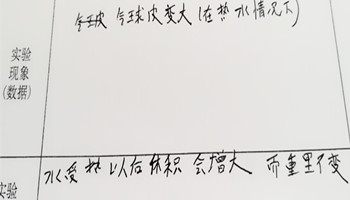 气球皮变大(在热水情况下)
实验
现象
(数据)
水受热以后体积会增大 而重量不变
实验